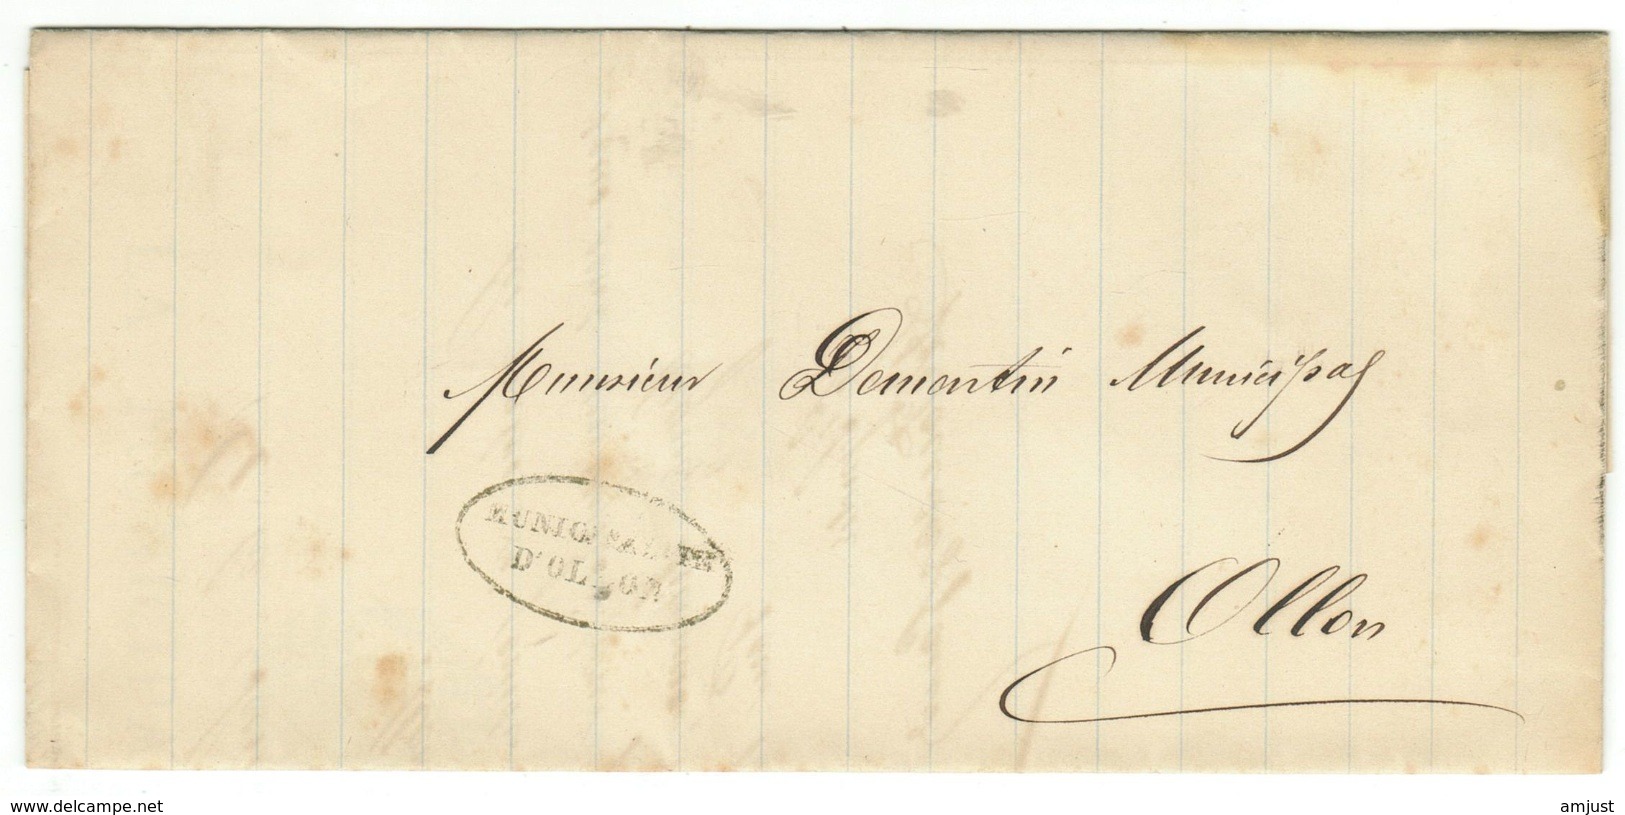 Monsieur Demartin Municipal
MUNICIPALITÉ
D'OLLON
Ollon
www.delcampe.net
amjust